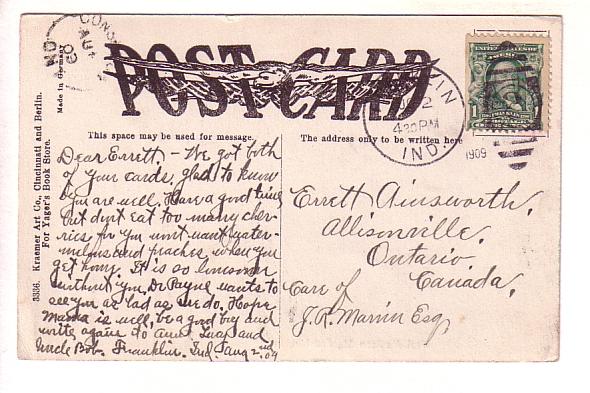 CONS
AUG
IND
09
Made in Germany
POST CARD
UNITED STATES OF
1
FRANKLIN
2
430 PM
IND.
1909
This space may be used for message.
The address only to be written here
3336. Kraemer Art Co., Cincinnati and Berlin.
For Yager's Book Store.
Dear Errett. - We got both
of your cards, glad to know
you are well. Have a good time
but don't eat too many cher-
ries for you wont want water-
melons and peaches when you
get home. It is so lonesome
without you. Dr Payne wants to
see you as bad as we do. Hope
Mama is well, be a good boy and
write again to Aunt Lucy and
Uncle Bob. Franklin. Ind, Aug 2nd 09
Errett Ainsworth,
Allisonville,
Ontario,
Canada,
Care of
J. R. Esq,